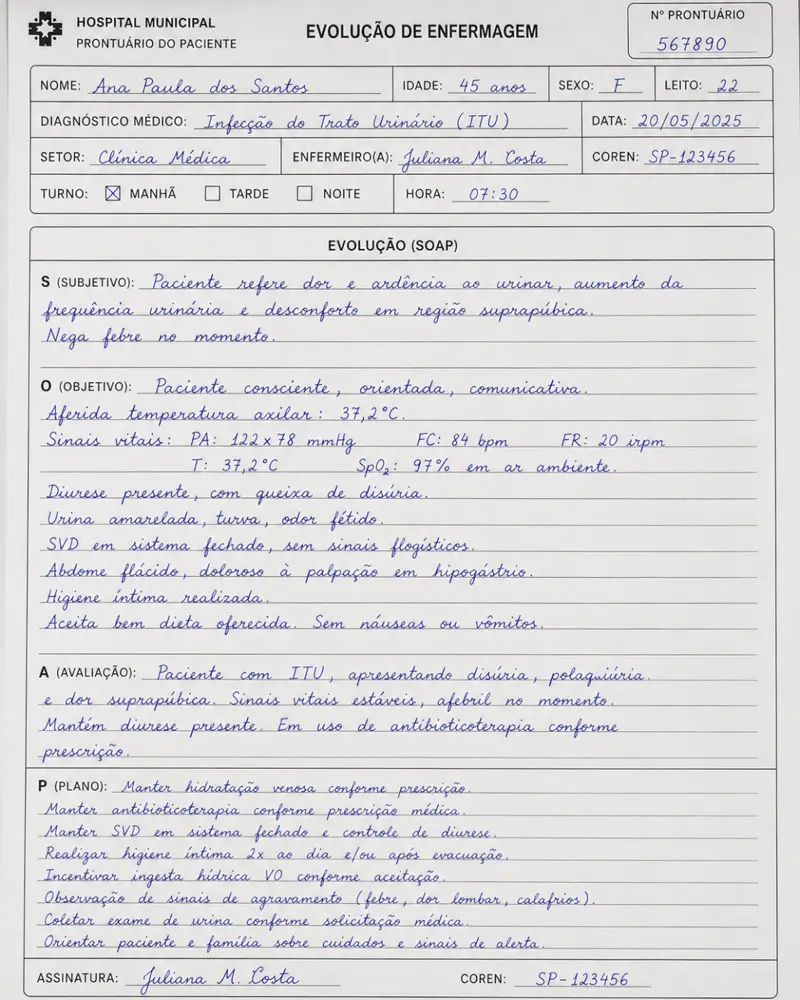 HOSPITAL MUNICIPAL
PRONTUÁRIO DO PACIENTE
EVOLUÇÃO DE ENFERMAGEM
Nº PRONTUÁRIO
567890
NOME: Ana Paula dos Santos IDADE: 45 anos SEXO: F LEITO: 22
DIAGNÓSTICO MÉDICO: Infecção do Trato Urinário (ITU) DATA: 20/05/2025
SETOR: Clínica Médica ENFERMEIRO(A): Juliana M. Costa COREN: SP-123456
TURNO: ☒ MANHÃ ☐ TARDE ☐ NOITE HORA: 07:30
EVOLUÇÃO (SOAP)
S (SUBJETIVO): Paciente refere dor e ardência ao urinar, aumento da
frequência urinária e desconforto em região suprapúbica.
Nega febre no momento.
O (OBJETIVO): Paciente consciente, orientada, comunicativa.
Aferida temperatura axilar: 37,2°C.
Sinais vitais: PA: 122x78 mmHg FC: 84 bpm FR: 20 irpm
T: 37,2°C SpO₂: 97% em ar ambiente.
Diurese presente, com queixa de disúria.
Urina amarelada, turva, odor fétido.
SVD em sistema fechado, sem sinais flogísticos.
Abdome flácido, doloroso à palpação em hipogástrio.
Higiene íntima realizada.
Aceita bem dieta oferecida. Sem náuseas ou vômitos.
A (AVALIAÇÃO): Paciente com ITU, apresentando disúria, polaquiúria
e dor suprapúbica. Sinais vitais estáveis, afebril no momento.
Mantém diurese presente. Em uso de antibioticoterapia conforme
prescrição.
P (PLANO): Manter hidratação venosa conforme prescrição.
Manter antibioticoterapia conforme prescrição médica.
Manter SVD em sistema fechado e controle de diurese.
Realizar higiene íntima 2x ao dia e/ou após evacuação.
Incentivar ingesta hídrica VO conforme aceitação.
Observação de sinais de agravamento (febre, dor lombar, calafrios).
Coletar exame de urina conforme solicitação médica.
Orientar paciente e família sobre cuidados e sinais de alerta.
ASSINATURA: Juliana M. Costa COREN: SP-123456